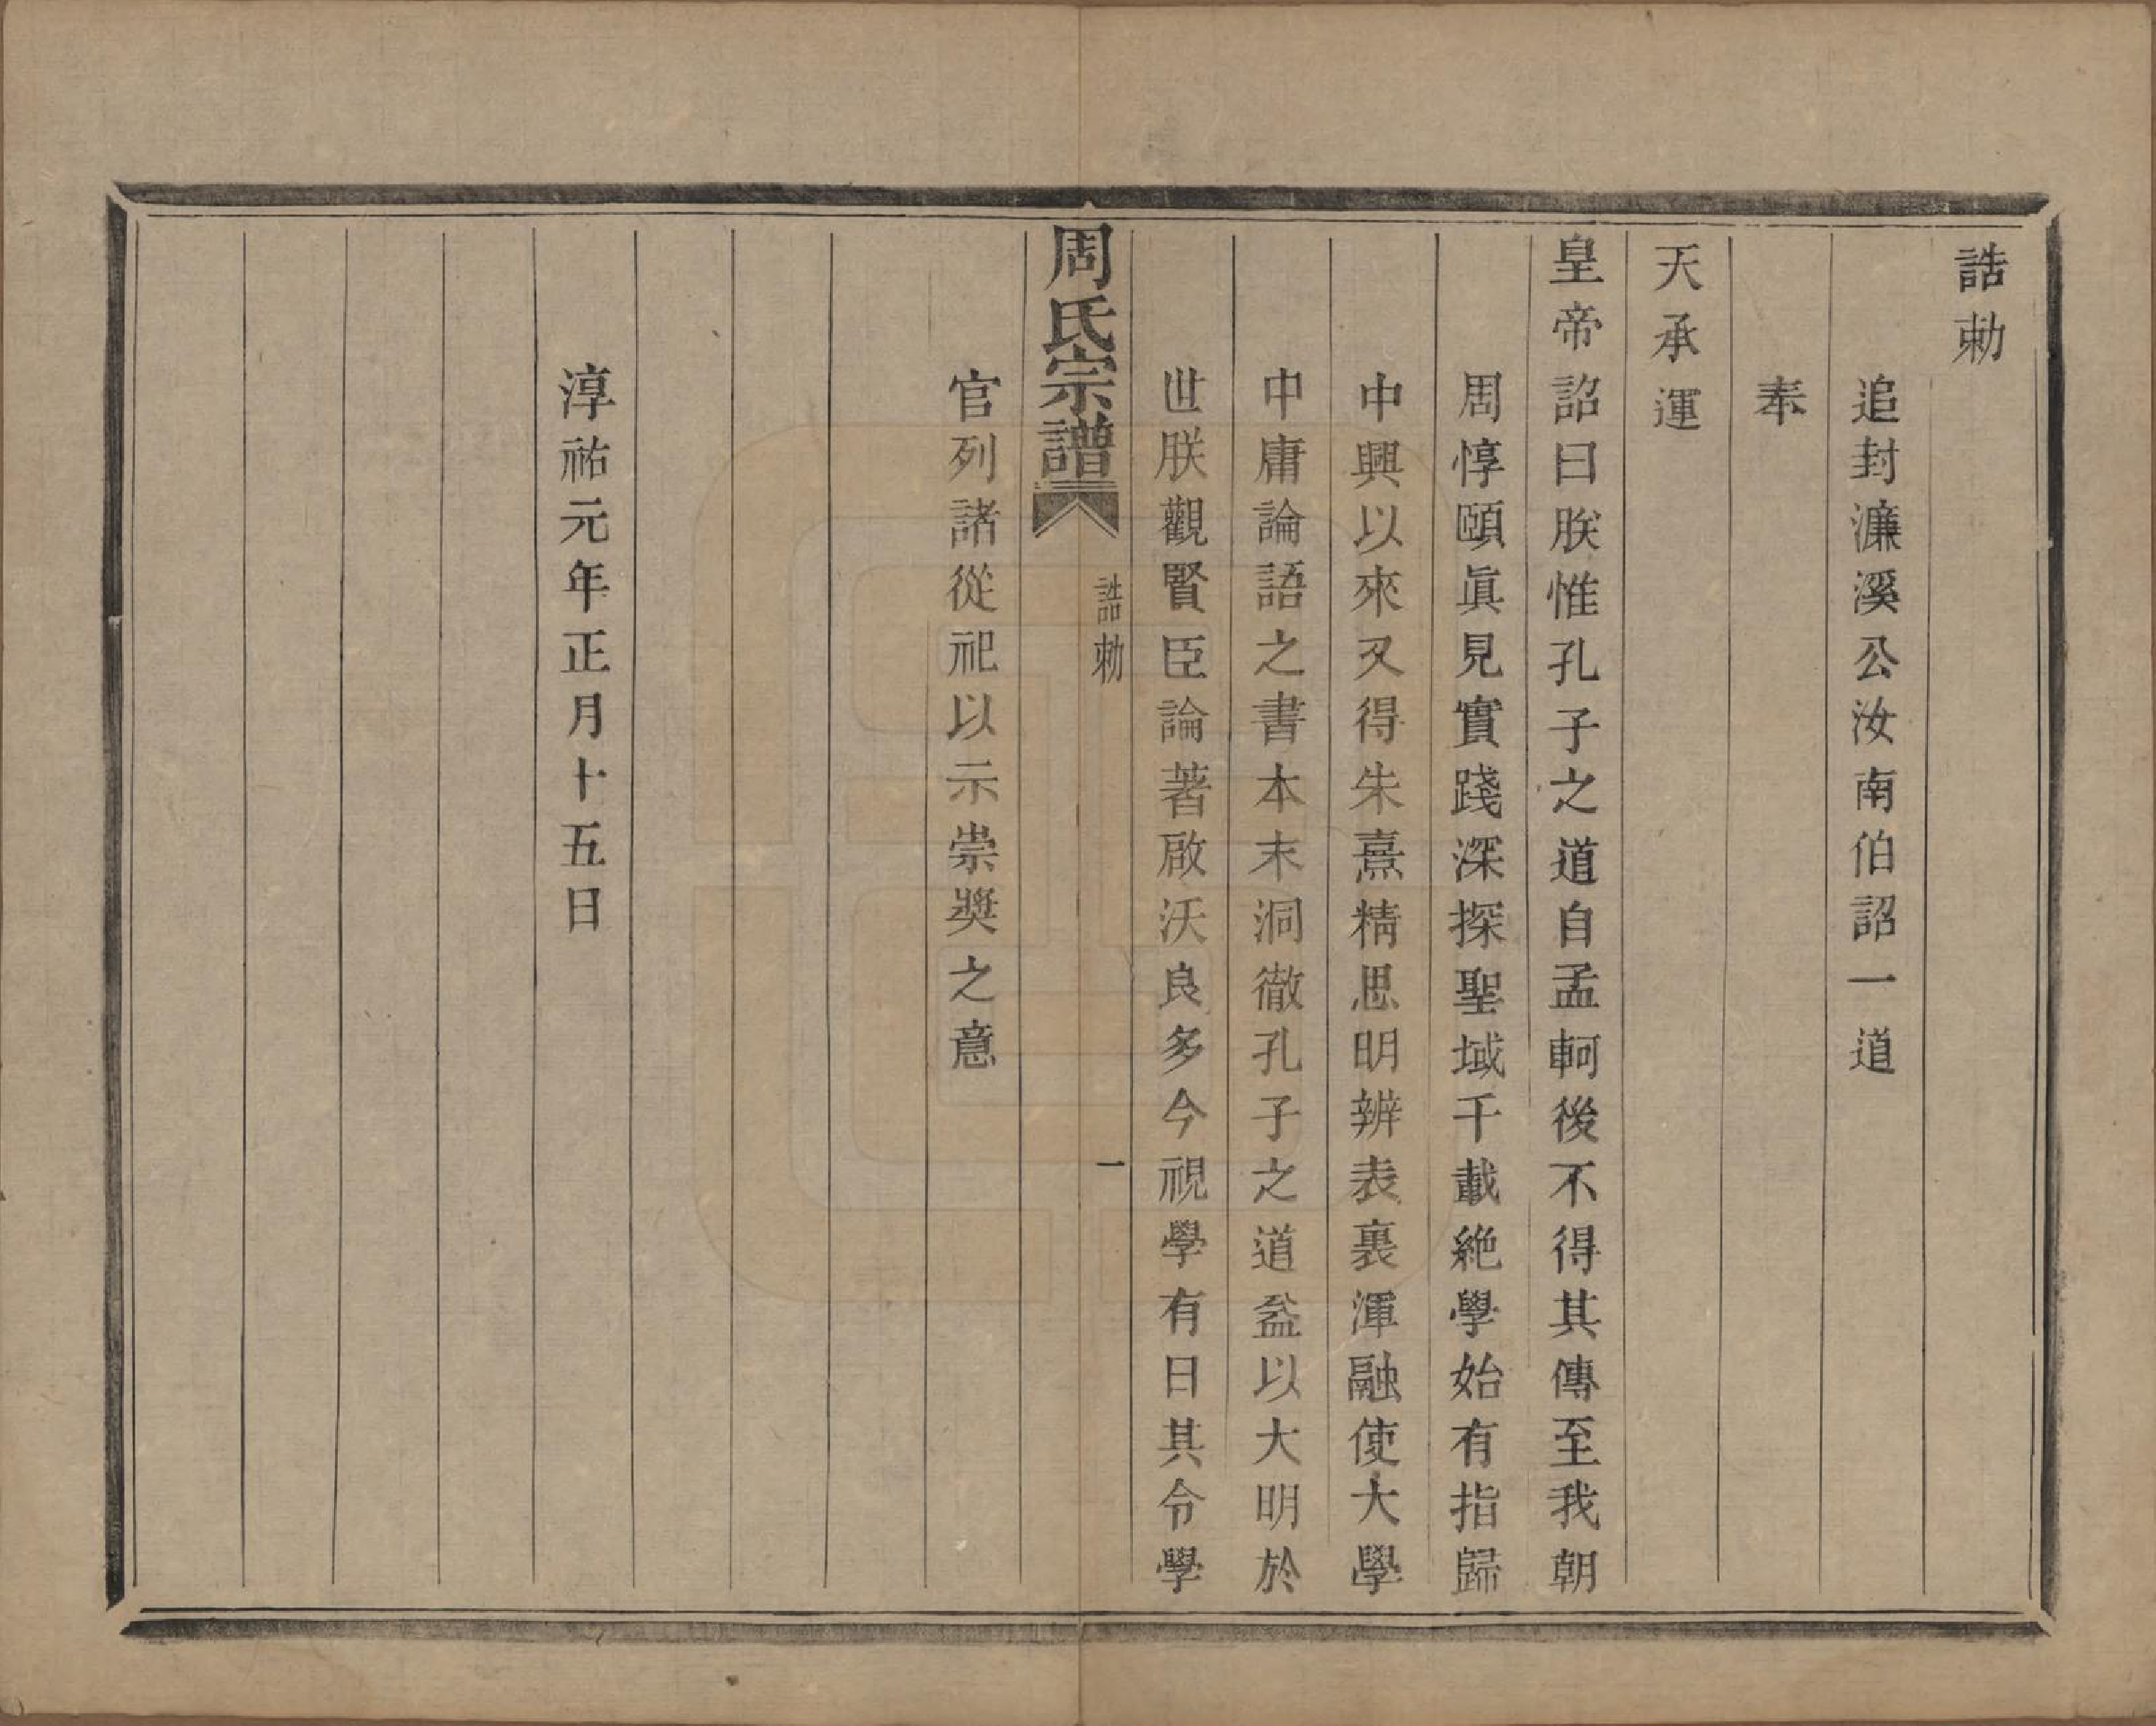 誥勅
追封濂溪公汝南伯詔一道
奉
天承運
皇帝詔曰朕惟孔子之道自孟軻後不得其傳至我朝
周惇頤眞見實踐深探聖域千載絶學始有指歸
中興以來又得朱熹精思明辨表裏渾融使大學
中庸論語之書本末洞徹孔子之道益以大明於
世朕觀賢臣論著啟沃良多今視學有日其令學
周氏宗譜 誥勅 一
官列諸從祀以示崇奬之意
淳祐元年正月十五日